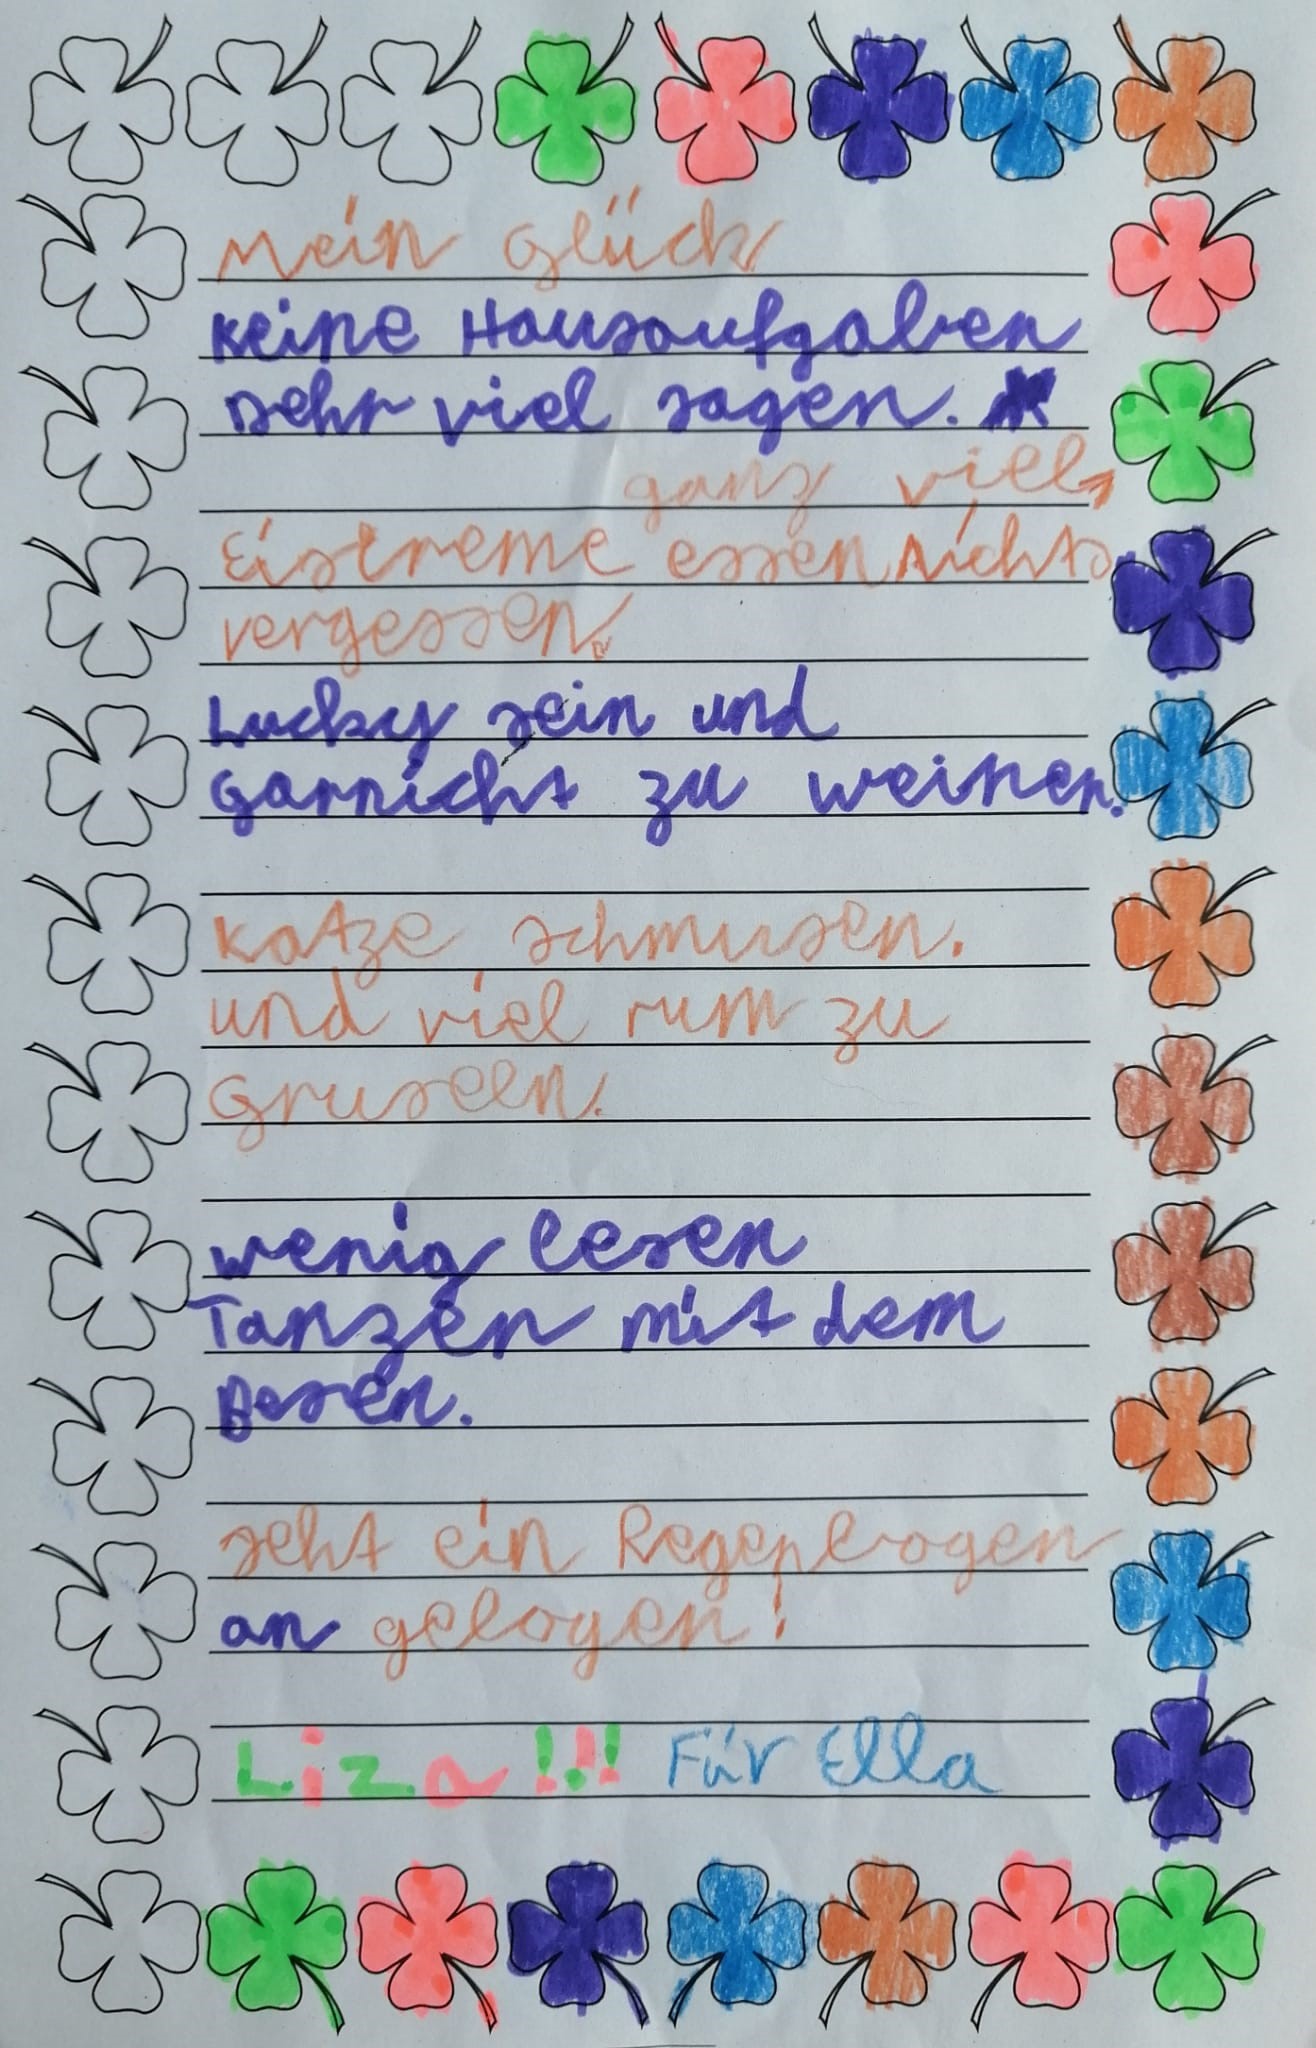 Mein Glück
Keine Hausaufgaben
sehr viel sagen.
ganz viel
Eiscreme essen Nichts
vergessen.
Lucky sein und
garnicht zu weinen.
Katze schmusen.
und viel rum zu
Gruseln.
wenig lesen
Tanzen mit dem
Besen.
seht ein Regenbogen
an gelogen!
Liza!!! Für Ella